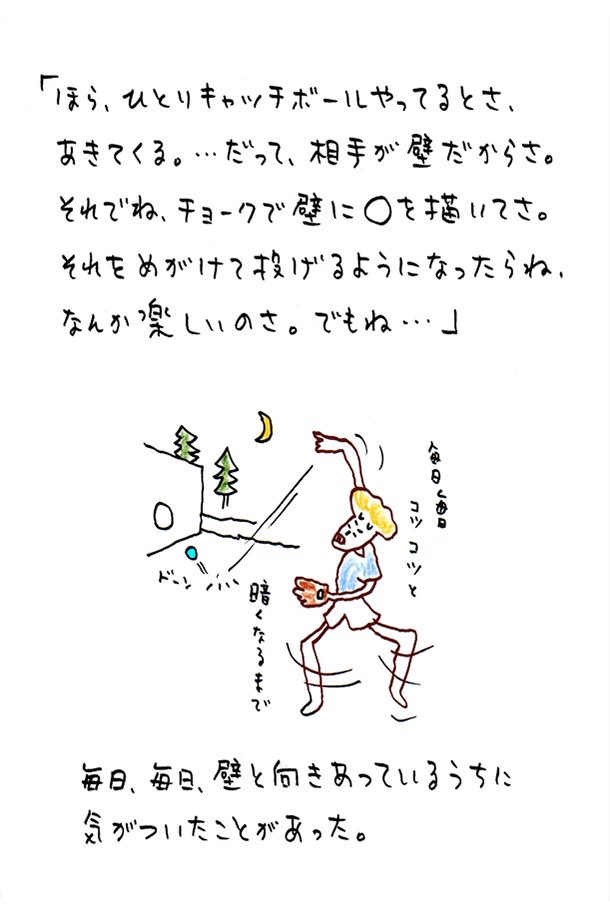 「ほら、ひとりキャッチボールやってるとさ、
あきてくる。…だって、相手が壁だからさ。
それでね、チョークで壁に〇を描いてさ。
それをめがけて投げるようになったらね、
なんか楽しいのさ。でもね…」
毎日毎日
コツコツと
ドーン
暗くなるまで
毎日、毎日、壁と向きあっているうちに
気がついたことがあった。